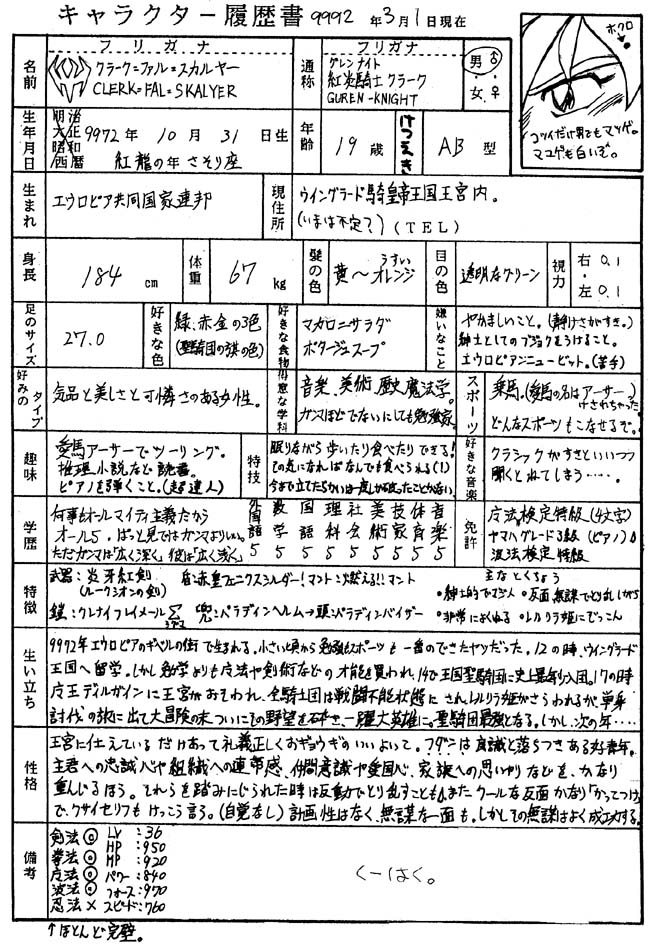 キャラクター履歴書 9992年3月1日現在
フリガナ
名前
クラーク=ファル=スカルヤー
CLERK=FAL=SKALYER
フリガナ
通称
グレンナイト
紅炎騎士クラーク
GUREN-KNIGHT
男♂・女♀
ホクロ
コイツだけ男でもマツゲ。
マユゲも白いぞ。
生年月日
明治
大正
昭和
西暦
9972年10月31日生
紅龍の年 さそり座
年齢
19歳
けつえき
AB型
生まれ
エウロピア共同国家連邦
現住所
ウイングラード騎皇帝王国王宮内。
(いまは不定?)(TEL)
身長
184cm
体重
67kg
髪の色
黄〜うすいオレンジ
目の色
透明なグリーン
視力
右0.1
・左0.1
足のサイズ
27.0
好きな色
緑、赤、金の3色
(聖騎団の3旗の色)
好きな食物
マカロニサラダ
ポタージュスープ
嫌いなこと
やかましいこと。(静けさがすき。)
紳士としてのブジョクをうけること。
エウロピアンニュービット。(苦手)
好みのタイプ
気品と美しさと可憐さのある女性。
得意な学科
音楽、美術、歴史、魔法学。
ガンマほどでないにしても勉強家。
スポーツ
乗馬。(愛馬の名はアーサー。)
けされちゃった。
どんなスポーツもこなせるぞ。
趣味
愛馬アーサーでツーリング。
推理小説など読書。
ピアノを弾くこと。(超達人)
特技
眠りながら歩いたり食べたりできる!
その気になればなんでも食べられる(!)
今まで立てたちかいは一度しか破ったことがない。
好きな音楽
クラシックがすきといいつつ
聞くとねてしまう……。
学歴
何事もオールマイティ主義だから
オール5。ぱっと見ではガンマよりいい。
ただガンマは「広く深く」彼は「広く浅く」
外国語 5
数学 5
国語 5
理科 5
社会 5
美術 5
技家 5
体育 5
音楽 5
免許
皮法検定特級(4文字)
ヤマハグレード3級(ピアノ)
波法検定特級
特徴
武器:炎牙紅剣
(ルークシオンの剣)
盾:赤皇フェニクスシルダー!マント:燃える!!マント
鎧:クレナイフレイメール
兜:パラディンヘルム→頭:パラディンバイザー
主なとくちょう
•紳士的でマジメ •反面、無謀でとり乱しがち
•非常によくねる •レルリラ姫にぞっこん
生い立ち
9972年エウロピアのギベルの街で生まれる。小さい頃から勉強もスポーツも一番のできたヤツだった。12の時、ウイングラード
王国へ留学。しかし勉学よりも皮法や剣術などの才能を買われ、14で王国聖騎団に史上最年少入団。17の時
皮王デルガインに王宮がおそわれ、全騎士団は戦闘不能状態にされ、レルリラ姫がさらわれるが、単身
討伐の旅に出て大冒険の末、ついにその野望を砕き、一躍大英雄に。聖騎団最強となる。しかし、次の年・・・・
性格
王宮に仕えているだけあって礼義正しくおギョウギのいいよいって。フダンは良識と落ちつきある好青年。
主君への忠誠心や組織への連帯感、仲間意識や愛国心、家族への思いやりなどを、かなり
重んじるほう。それらを踏みにじられた時は反動でとり乱すことも。またクールな反面かなり「かっこつけ」
で、クサイセリフもけっこう言う。(自覚なし)計画性はなく、無謀な一面も。しかしその無謀はよく成功する。
備考
剣法◎ LV:36
拳法◎ HP:950
皮法◎ MP:920
波法◎ パワー:840
忍法× フォース:970
スピード:760
くーはく。
↑ほとんど完璧。